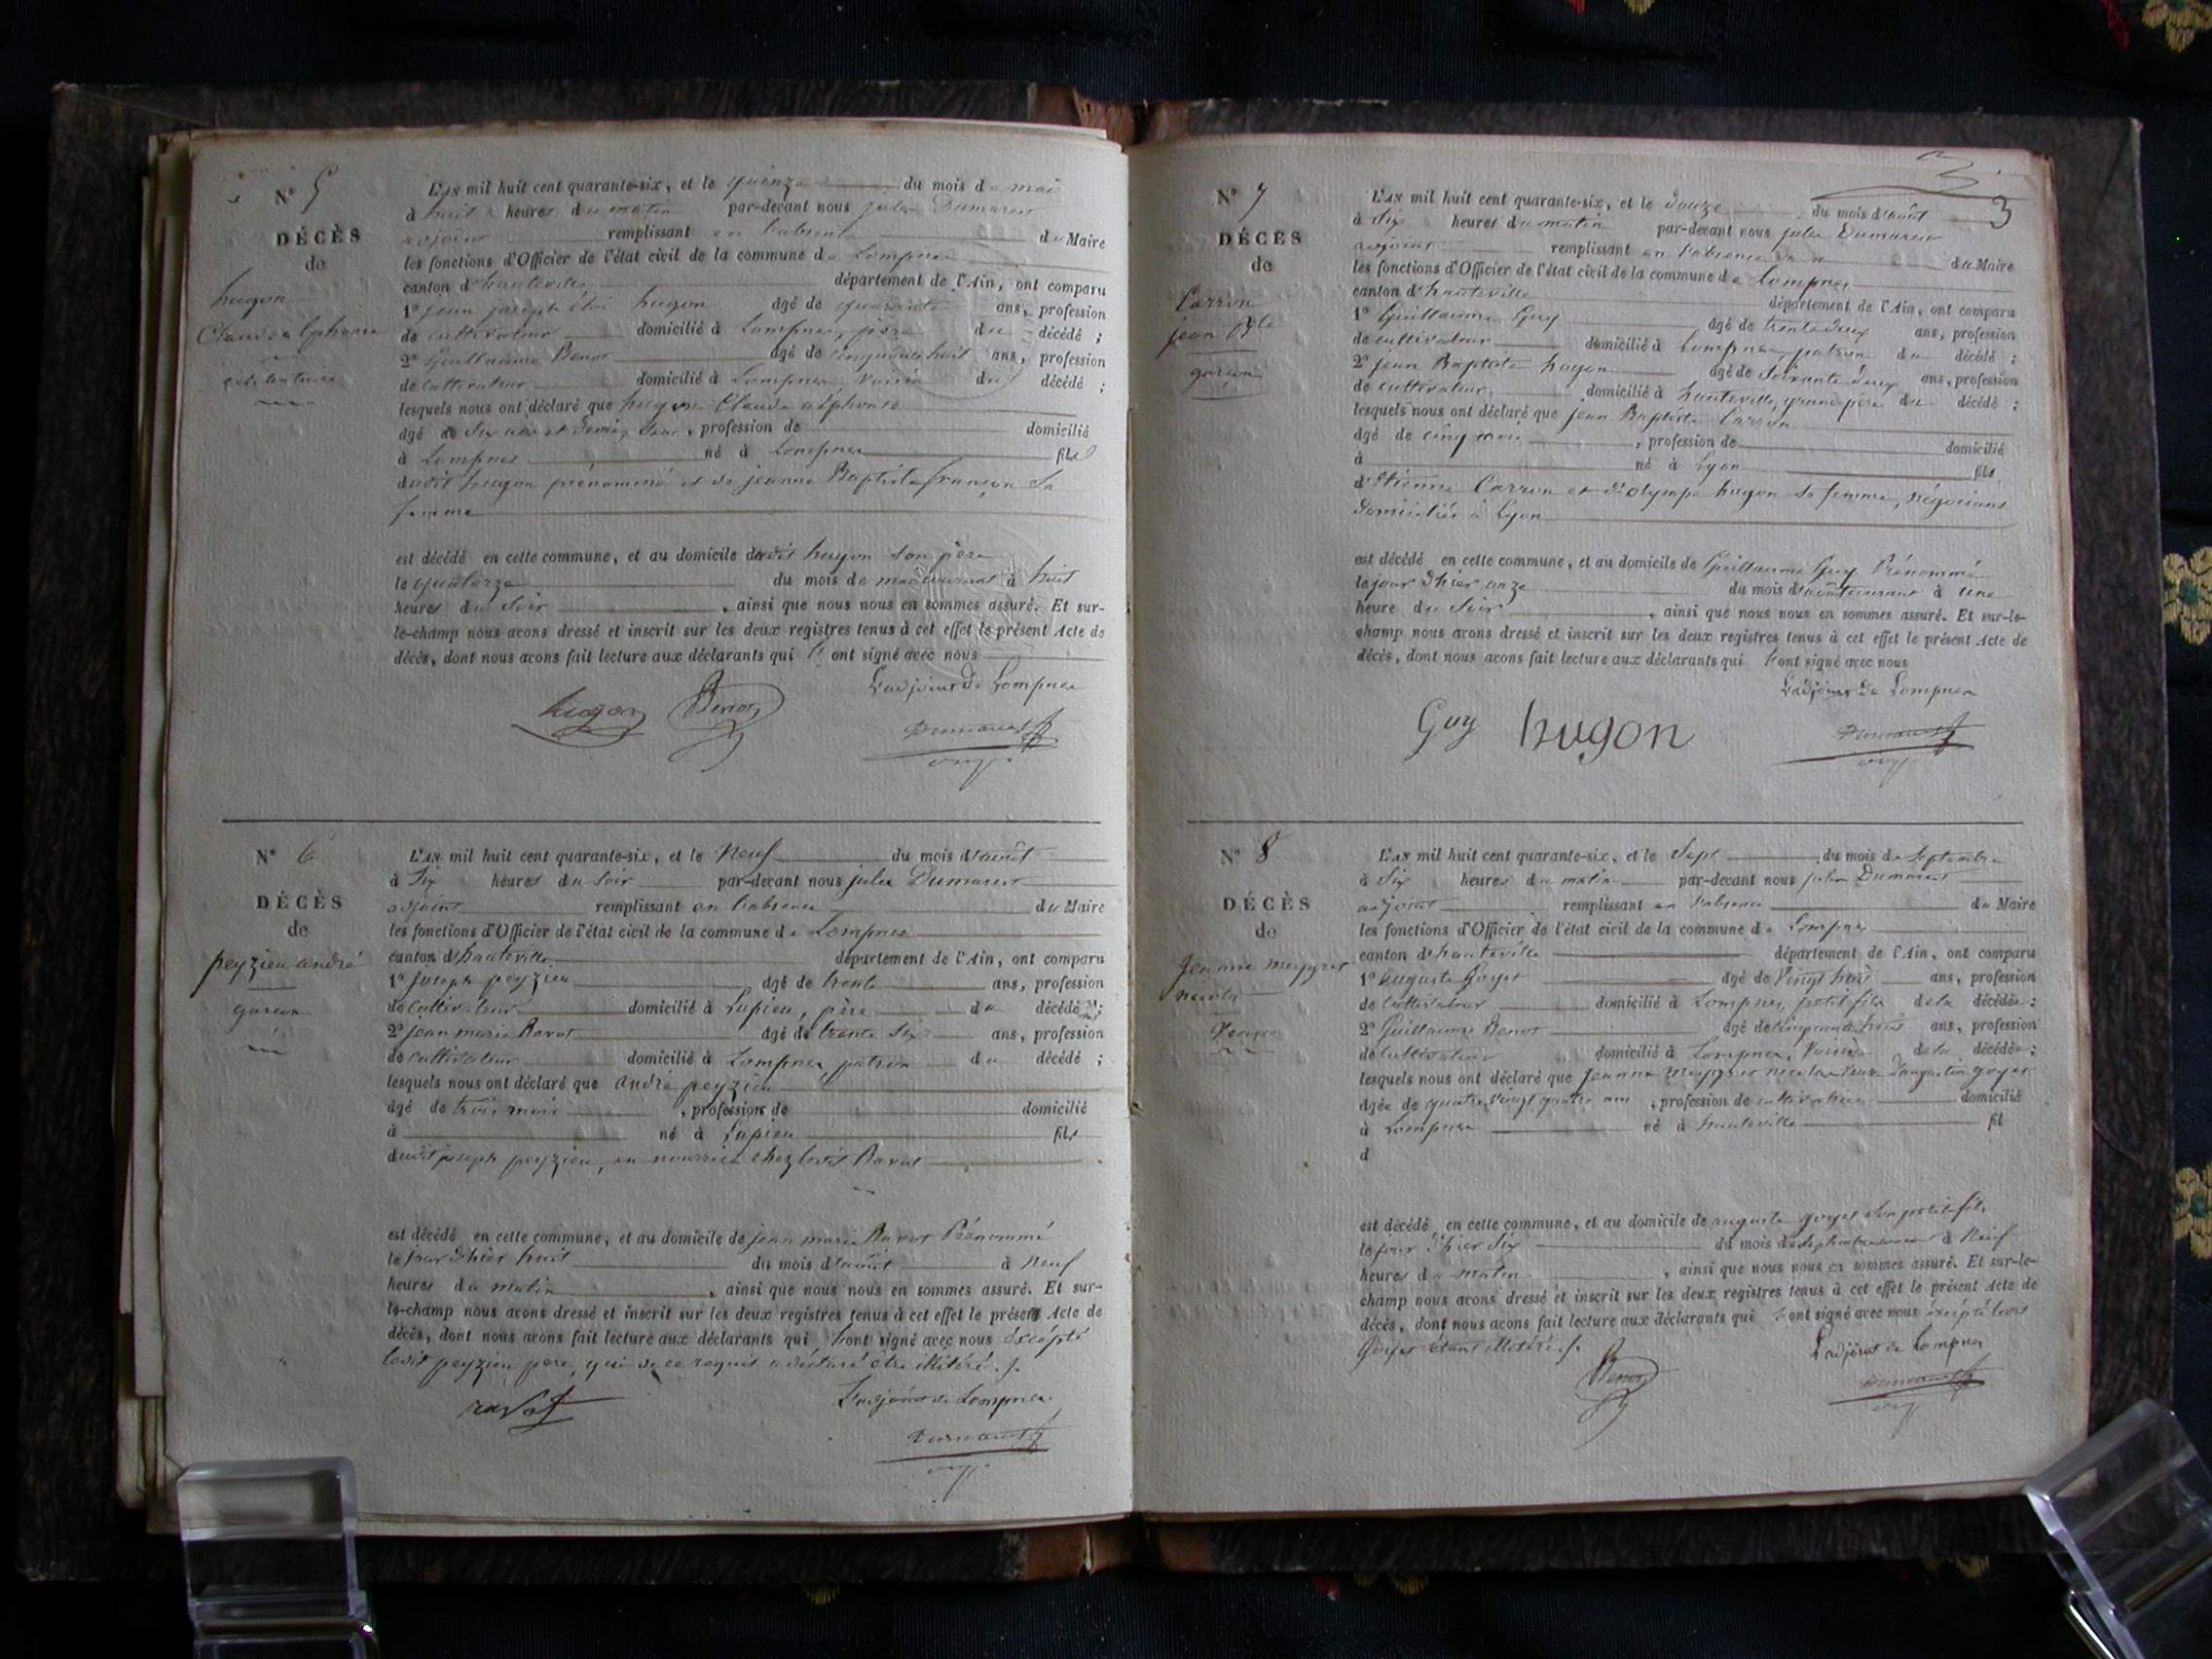 N° 5
DÉCÈS
de
hugon
Claude alphonse
cultivateur
L'AN mil huit cent quarante-six, et le quinze du mois de mai
à huit heures du matin par-devant nous jules Dumarest
adjoint remplissant en l'absence du Maire
les fonctions d'Officier de l'état civil de la commune de Lompnes
canton d'hauteville département de l'Ain, ont comparu
1° jean joseph éloi hugon âgé de quarante ans, profession
de cultivateur domicilié à Lompnes, père du décédé ;
2° Guillaume Benoz âgé de cinquante huit ans, profession
de cultivateur domicilié à Lompnes voisin du décédé ;
lesquels nous ont déclaré que hugon Claude alphonse
âgé de dix ans et demi, profession de domicilié
à Lompnes né à Lompnes fils
dudit hugon prénommé et de jeanne Baptiste françon sa
femme
est décédé en cette commune, et au domicile dudit hugon son père
le quatorze du mois de mai courant à huit
heures du soir, ainsi que nous nous en sommes assuré. Et sur-
le-champ nous avons dressé et inscrit sur les deux registres tenus à cet effet le présent Acte de
décès, dont nous avons fait lecture aux déclarants qui l' ont signé avec nous
L'adjoint de Lompnes
hugon Benoz Dumarest
N° 6
DÉCÈS
de
peyzieu andré
garçon
L'AN mil huit cent quarante-six, et le Neuf du mois d'août
à Six heures du soir par-devant nous jules Dumarest
adjoint remplissant en l'absence du Maire
les fonctions d'Officier de l'état civil de la commune de Lompnes
canton d'hauteville département de l'Ain, ont comparu
1° Joseph peyzieu âgé de trente ans, profession
de Cultivateur domicilié à Lupieu, père du décédé ;
2° Jean marie Ravot âgé de trente six ans, profession
de cultivateur domicilié à Lompnes, patron du décédé ;
lesquels nous ont déclaré que andré peyzieu
âgé de trois mois, profession de domicilié
à né à Lupieu fils
dudit joseph peyzieu, en nourrice chez ledit Ravot
est décédé en cette commune, et au domicile de jean marie Ravot Prénommé
le jour d'hier huit du mois d'août à Neuf
heures du matin, ainsi que nous nous en sommes assuré. Et sur-
le-champ nous avons dressé et inscrit sur les deux registres tenus à cet effet le présent Acte de
décès, dont nous avons fait lecture aux déclarants qui l'ont signé avec nous excepté
ledit peyzieu père, qui de ce requis a déclaré être illitéré ./.
L'adjoint de Lompnes
ravot Dumarest
3
N° 7
DÉCÈS
de
Carron
jean Bte
garçon
L'AN mil huit cent quarante-six, et le douze du mois d'août
à Six heures du matin par-devant nous jules Dumarest
adjoint remplissant en l'absence du Maire
les fonctions d'Officier de l'état civil de la commune de Lompnes
canton d'hauteville département de l'Ain, ont comparu
1° Guillaume Guy âgé de trente deux ans, profession
de cultivateur domicilié à Lompnes, patron du décédé ;
2° jean Baptiste hugon âgé de Soixante deux ans, profession
de cultivateur domicilié à hauteville, grand père du décédé ;
lesquels nous ont déclaré que jean Baptiste Carron
âgé de cinq mois, profession de domicilié
à né à Lyon fils
d'Etienne Carron et d'olympe hugon sa femme, négocians
domiciliés à Lyon
est décédé en cette commune, et au domicile de Guillaume Guy Prénommé
le jour d'hier onze du mois d'août courant à une
heure du soir, ainsi que nous nous en sommes assuré. Et sur-le-
champ nous avons dressé et inscrit sur les deux registres tenus à cet effet le présent Acte de
décès, dont nous avons fait lecture aux déclarants qui l'ont signé avec nous
L'adjoint de Lompnes
Guy hugon Dumarest
N° 8
DÉCÈS
de
Jeanne
veuve
L'AN mil huit cent quarante-six, et le Sept du mois de Septembre
à Six heures du matin par-devant nous jules Dumarest
adjoint remplissant en l'absence du Maire
les fonctions d'Officier de l'état civil de la commune de Lompnes
canton d'hauteville département de l'Ain, ont comparu
1° auguste Goyet âgé de Vingt huit ans, profession
de Cultivateur domicilié à Lompnes, petit fils de la décédée ;
2° Guillaume Benoz âgé de cinquante huit ans, profession
de Cultivateur domicilié à Lompnes, Voisin de la décédée ;
lesquels nous ont déclaré que jeanne veuve d'augustin goyet
âgée de quatre vingt quatre ans, profession de cultivatrice domicilié
à Lompnes né à hauteville fil
d
est décédé en cette commune, et au domicile de auguste goyet son petit fils
le jour d'hier Six du mois de Septembre courant à Neuf
heures du matin, ainsi que nous nous en sommes assuré. Et sur-le-
champ nous avons dressé et inscrit sur les deux registres tenus à cet effet le présent Acte de
décès, dont nous avons fait lecture aux déclarants qui l'ont signé avec nous excepté ledit
Goyet étant illitéré ./.
L'adjoint de Lompnes
Benoz Dumarest